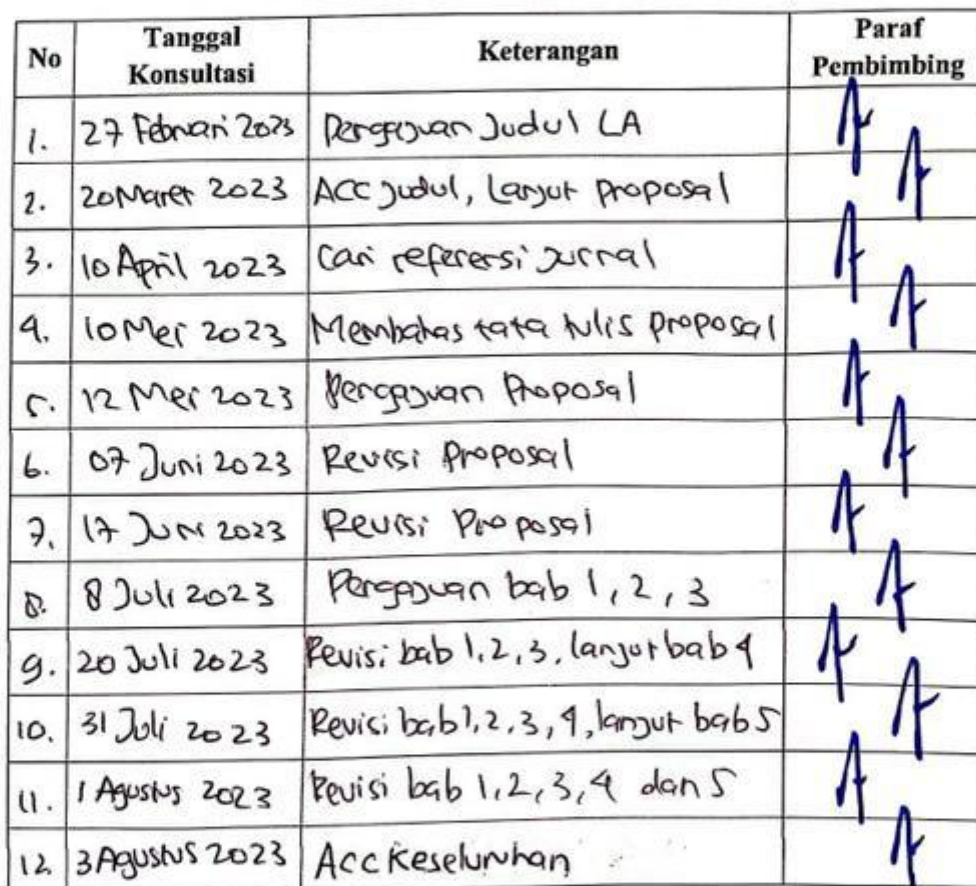 No Tanggal Konsultasi Keterangan Paraf Pembimbing
1. 27 Februari 2023 Pengajuan Judul LA
2. 20 Maret 2023 ACC Judul, Lanjut proposal
3. 10 April 2023 Cari referensi Jurnal
4. 10 Mei 2023 Membahas tata tulis proposal
5. 12 Mei 2023 Pengajuan Proposal
6. 07 Juni 2023 Revisi Proposal
7. 17 Juni 2023 Revisi Proposal
8. 8 Juli 2023 Pengajuan bab 1, 2, 3
9. 20 Juli 2023 Revisi bab 1, 2, 3, lanjut bab 4
10. 31 Juli 2023 Revisi bab 1, 2, 3, 4, lanjut bab 5
11. 1 Agustus 2023 Revisi bab 1, 2, 3, 4 dan 5
12. 3 Agustus 2023 Acc Keseluruhan